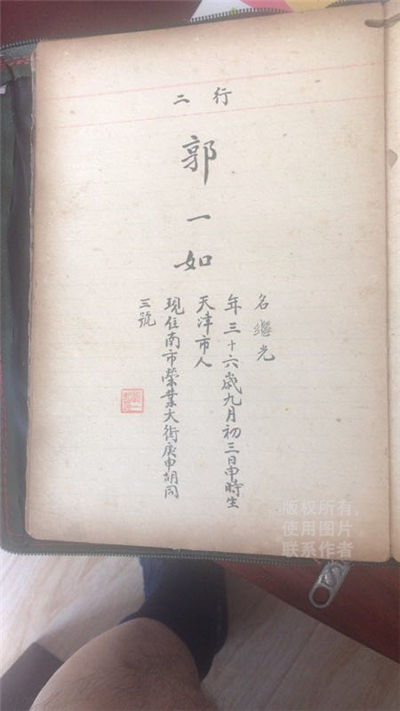 行二
郭一如
名繼光
年三十六歲九月初三日申時生
天津市人
現住南市榮業大街庚申胡同
三號
版权所有，
使用图片
联系作者